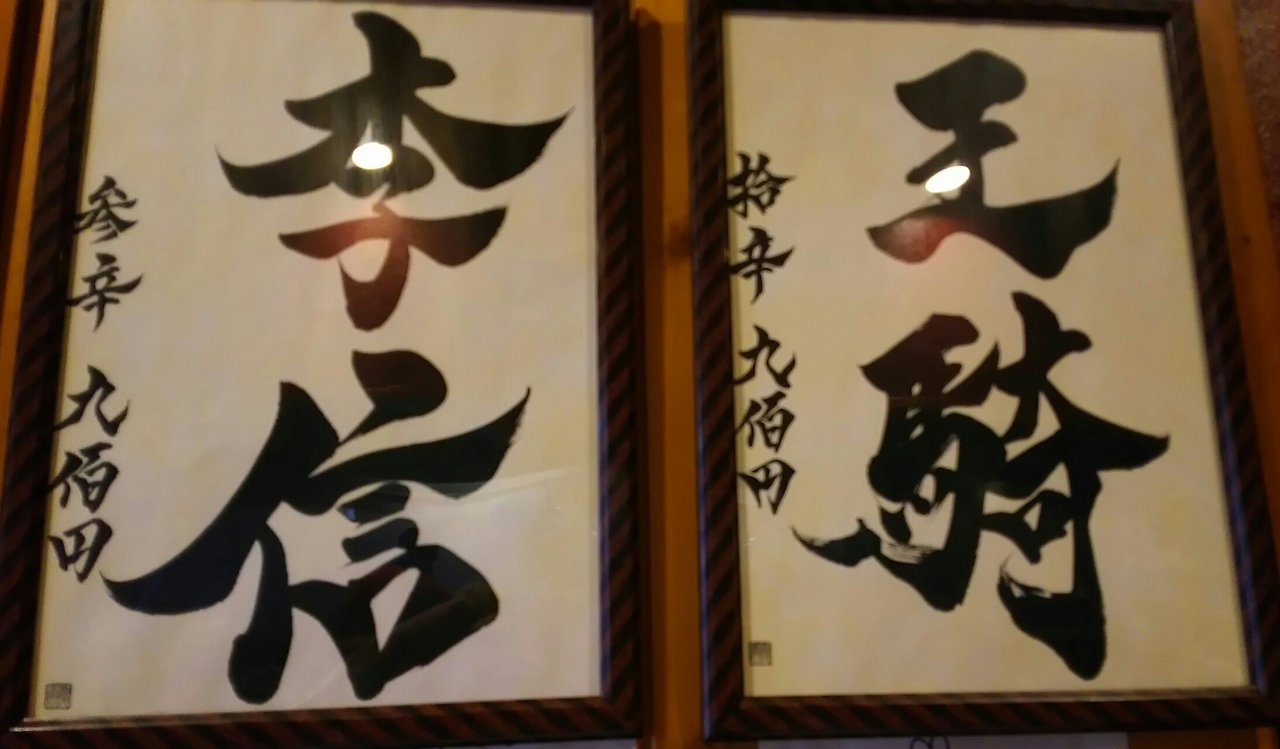 王騎
拾辛 九佰円
李信
参辛 九佰円